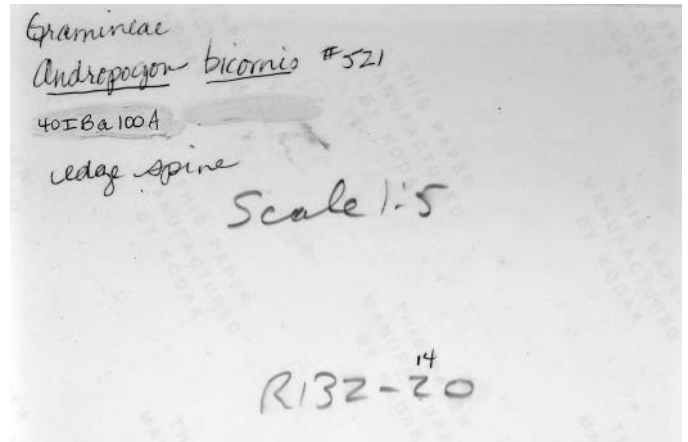 Gramineae
Andropogon bicornis #521
40IBa100A
edge spine
Scale 1:5
14
R132-20
THIS PAPER
MANUFACTURED
BY KODAK